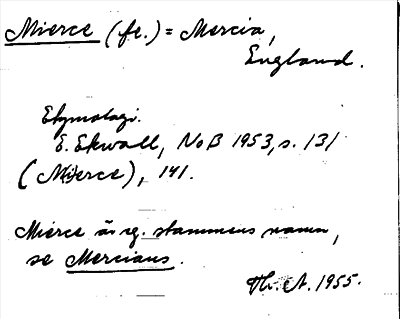 Mierce (fe.) = Mercia,
England.
Etymologi.
E. Ekwall, NoB 1953, s. 131
(Mierce), 141.
Mierce är eg. stammens namn,
se Mercians.
Th. A. 1955.